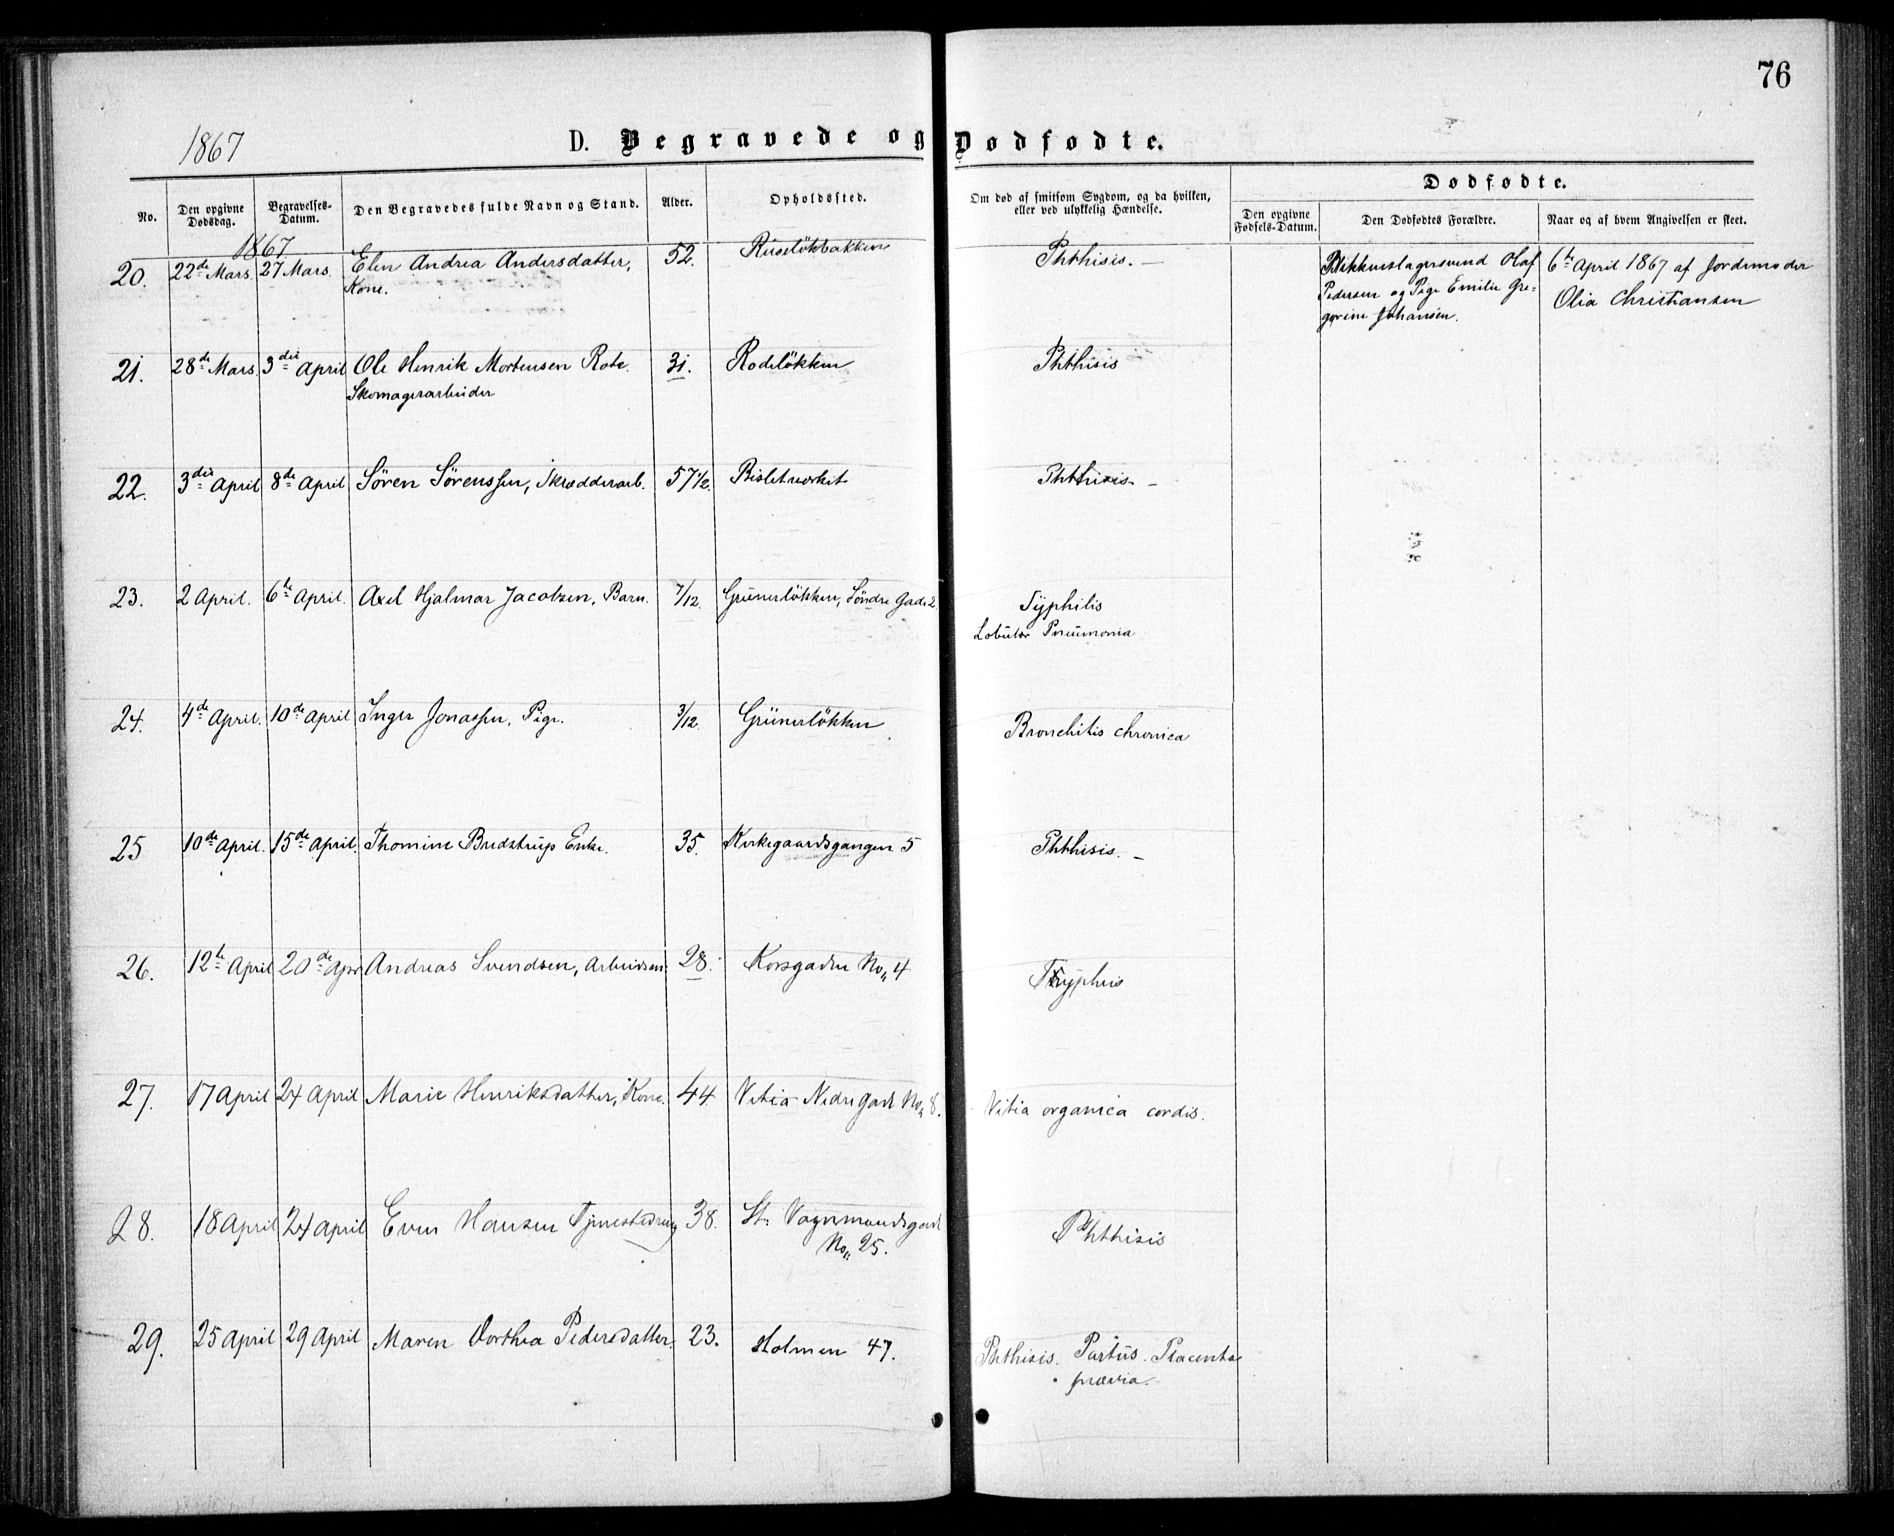 76
1867
D. Begravede og Dødfødte.
No.
Den opgivne Dødsdag.
Begravelses-Datum.
Den Begravedes fulde Navn og Stand.
Alder.
Opholdssted.
Om død af smitsom Sygdom, og da hvilken, eller ved ulykkelig Hændelse.
Dødfødte.
Den opgivne Fødsels-Datum.
Den Dødfødtes Forældre.
Naar og af hvem Angivelsen er skeet.
1867
20. 22de Mars. 27 Mars. Elen Andrea Andersdatter, 52. Ruseløkbakken Phthisis. —
Kone.
Blikkenslagersvend Olaf
Pedersen og Pige Emilie Gre-
gorine Johansen.
6te April 1867 af Jordemoder
Olia Christiansen
21. 28de Mars. 3die April Ole Henrik Mortensen Rote. 31. Rodeløkken Phthisis
Skomagerarbeider
22. 3die April 8de April Søren Sørenssen, Skrædderarb. 57 1/2. Bisletverket Phthisis —
23. 2 April. 6te April. Axel Hjalmar Jacobsen, Barn. 7/12. Grünerløkken, Søndre Gade 2 Syphilis
Lobulær Pneumonia
24. 4de April. 10de April Inger Jonassen, Pige. 3/12. Grünerløkken Bronchitis chronica
25 10de April. 15de April. Thomine Bredstrup Enke. 35. Kirkegaardsgangen 5 Phthisis. —
26. 12te April 20de Apr Andreas Svendsen, Arbeidsm: 28. Korsgaden No 4 Typhus
27. 17 April 24 April Marie Henriksdatter, Kone. 44 Vitia Nedregade No 8. Vitia organica cordis.
28. 18 April 24 April Even Hansen Tjenestedreng 38. St. Vognmandsgade Phthisis
No 25.
29. 25 April 29 April Maren Dorthea Pedersdatter. 23. Holmen 47. Phthisis. Partus. Placenta
prævia.